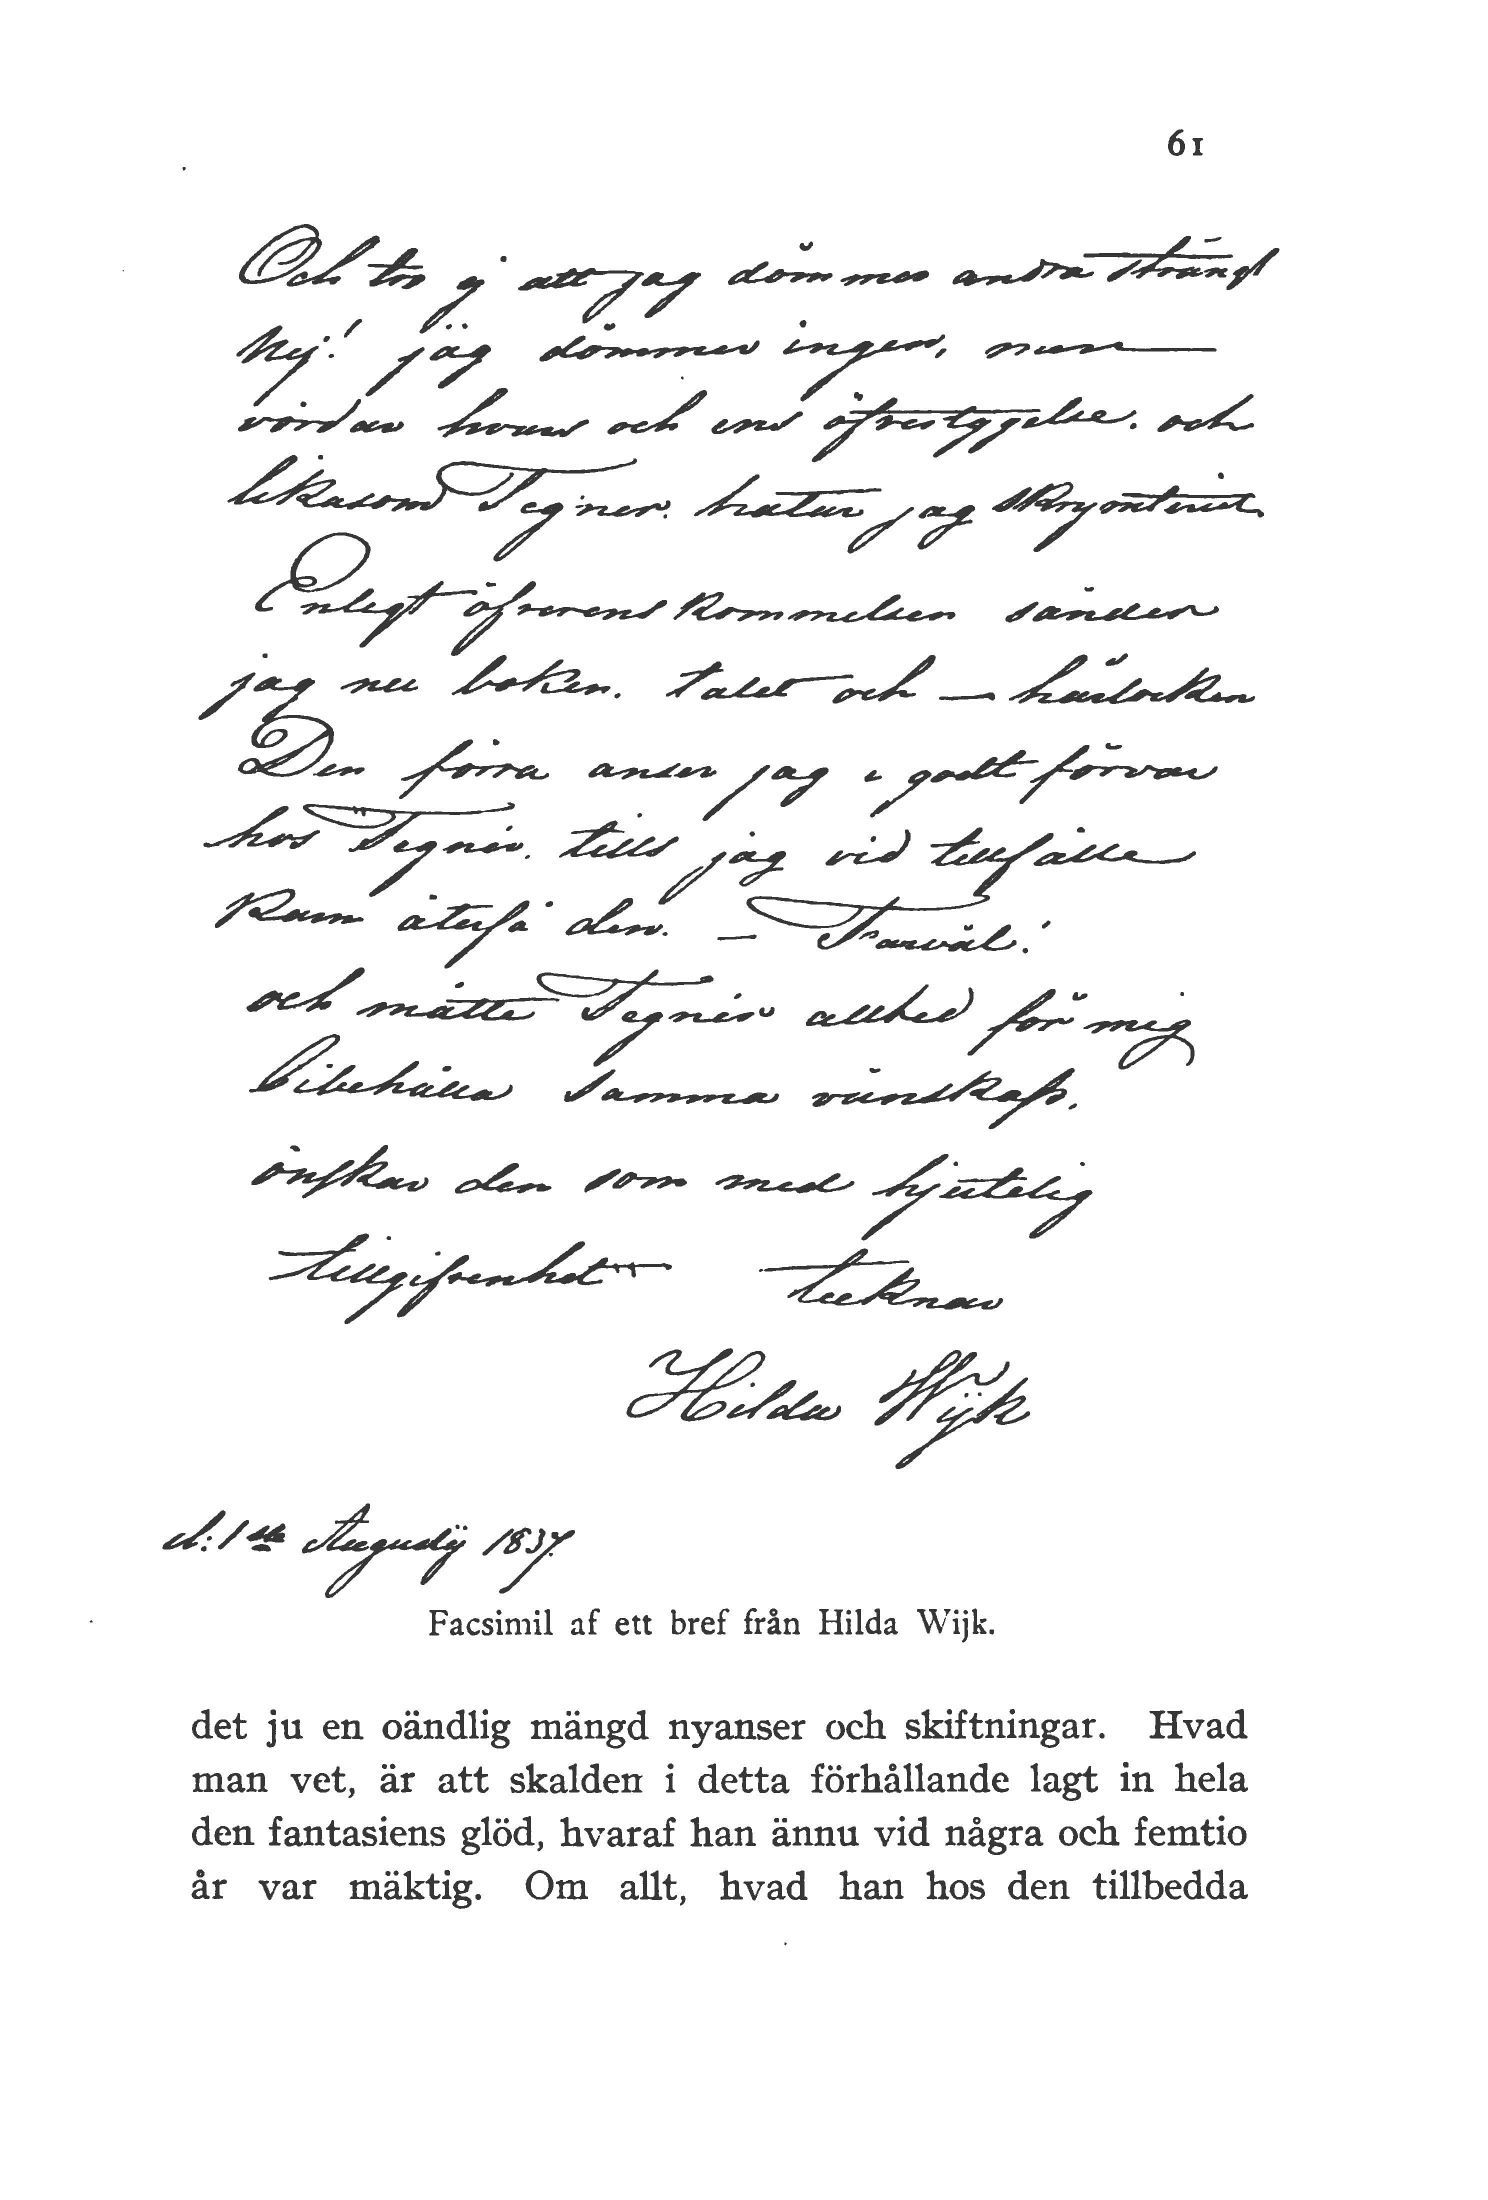 61
Och tro ej att jag dömmer andra strängt
Nej! jag dömmer ingen, men
vördar hvars och ens öfvertygelse. och
likasom Tegner. hatar jag skrymteriet.
Enligt öfverenskommelsen sänder
jag nu boken. talet och — hårlocken
Den förra anser jag i godt förvar
hos Tegnér. tills jag vid tillfälle
kan återfå den. — Farväl!
och måtte Tegnér alltid för mig
bibehålla samma vänskap,
önskar den som med hjertelig
tillgifvenhet tecknar
Hilda Wijk
d: 1ste Augusti 1837.
Facsimil af ett bref från Hilda Wijk.
det ju en oändlig mängd nyanser och skiftningar. Hvad
man vet, är att skalden i detta förhållande lagt in hela
den fantasiens glöd, hvaraf han ännu vid några och femtio
år var mäktig. Om allt, hvad han hos den tillbedda